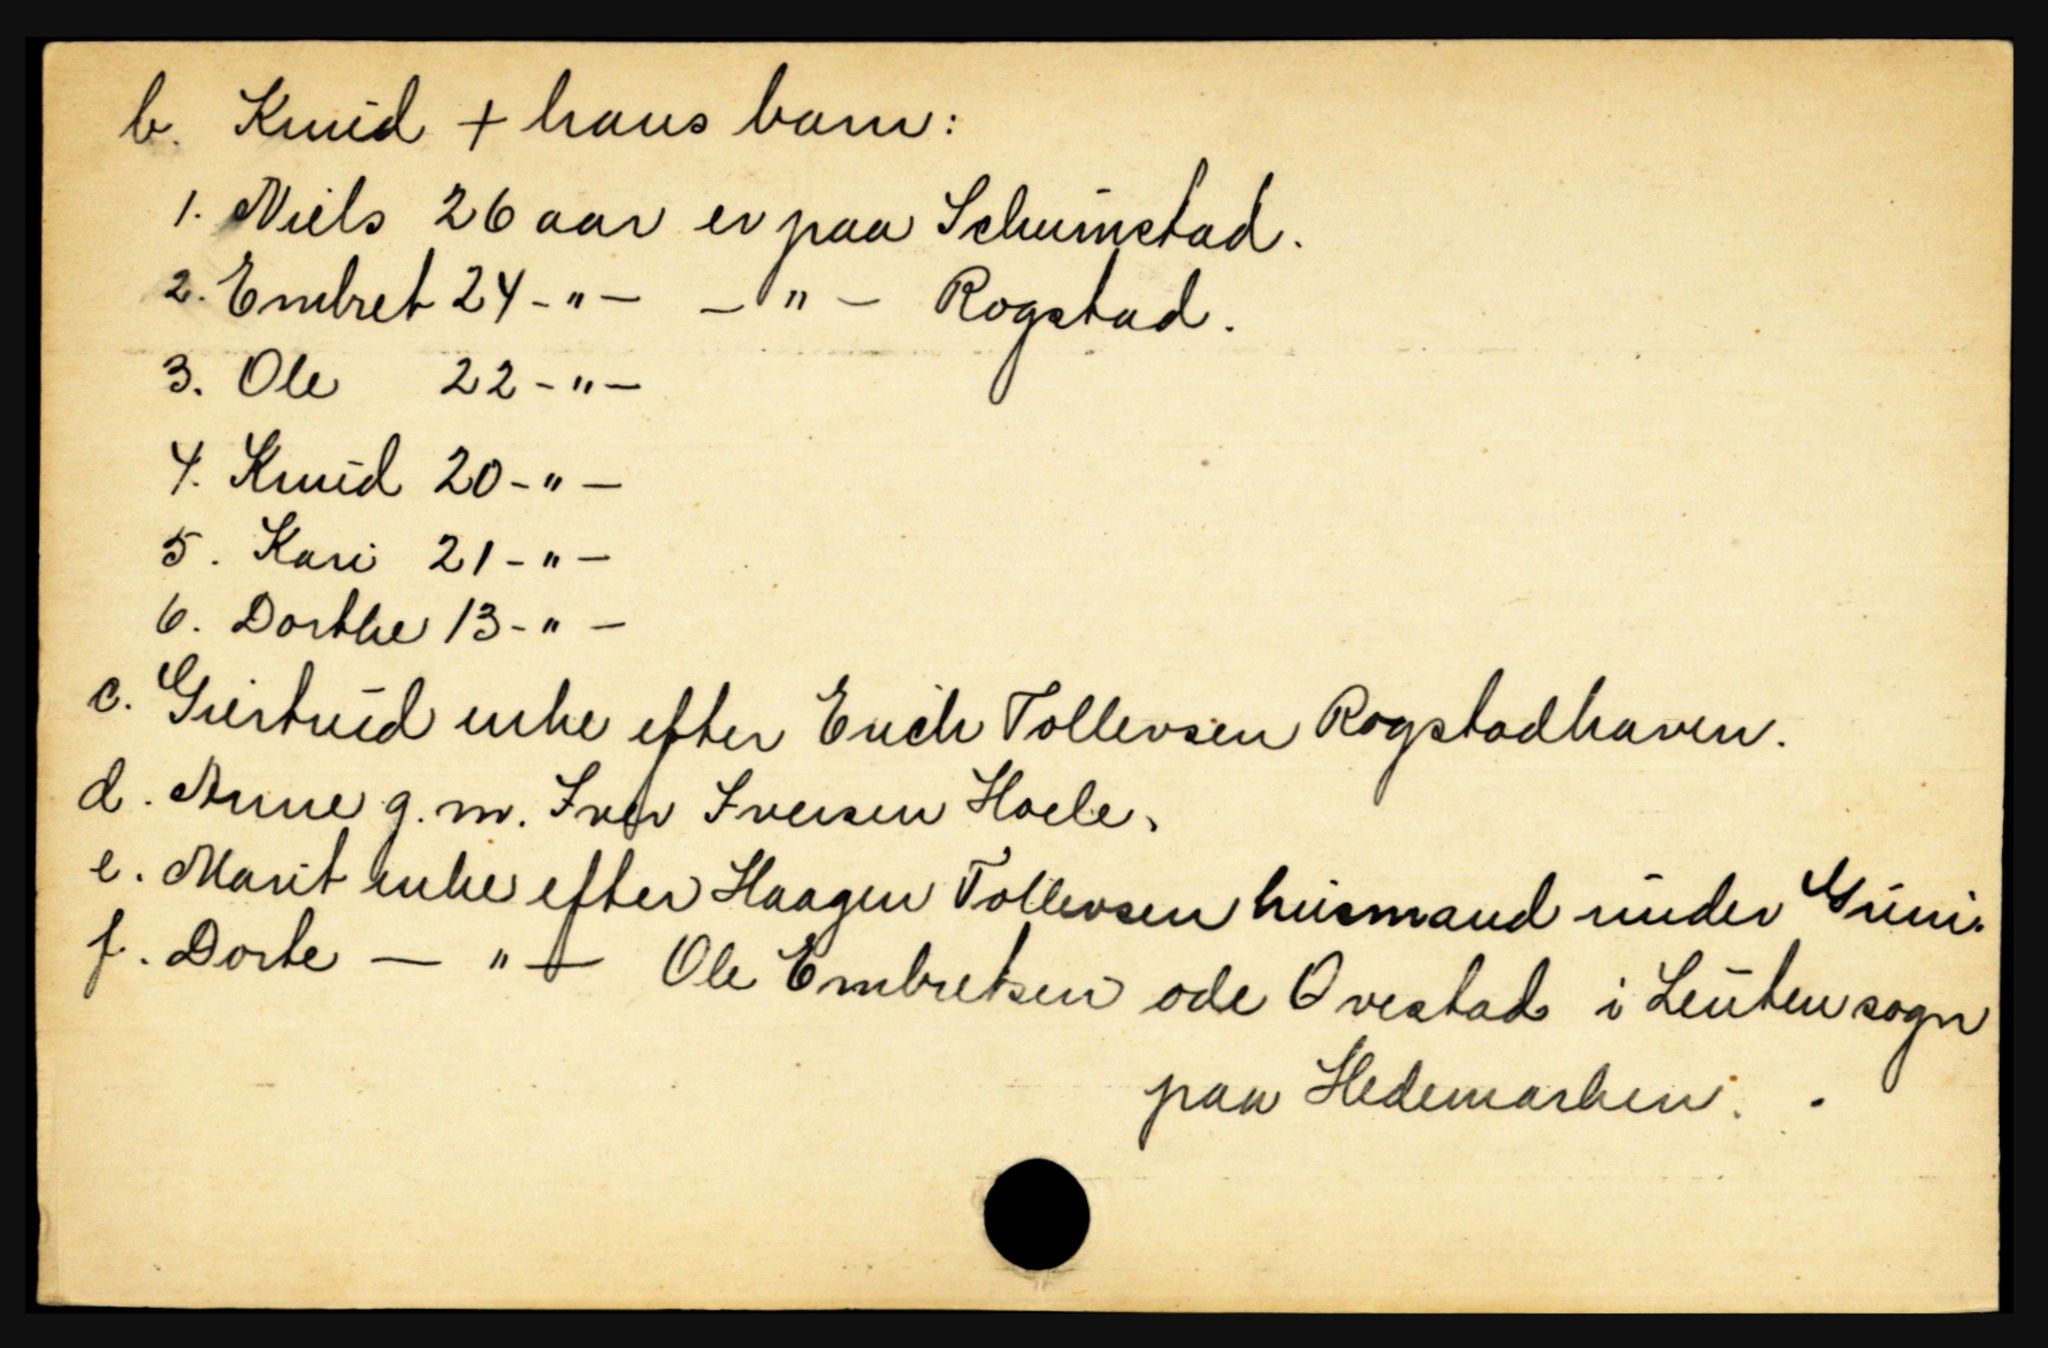 b. Knud + hans barn:
1. Niels 26 aar er paa Schumstad.
2. Embret 24 - " - - " - Rogstad.
3. Ole 22 - " -
4. Knud 20 - " -
5. Kari 21 - " -
6. Dorthe 13 - " -
c. Giertrud enke efter Erich Tollevsen Rogstadhaven.
d. Anne g. m. Iver Iversen Hoele.
e. Marit enke efter Haagen Tollevsen husmand under
f. Dorte - " - Ole Embretsen øde Ovestad i Leuten sogn
paa Hedemarken.